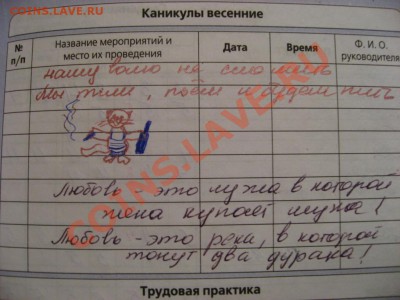 COINS.LAV.RU
Каникулы весенние
№ п/п
Название мероприятий и место их проведения
Дата
Время
Ф. И. О. руководителя
нашу волю не сломить
Мы пили, поём и будем пить
Любовь - это лужа в которой
жена купает мужа!
Любовь - это река, в которой
тонут два дурака!
Трудовая практика